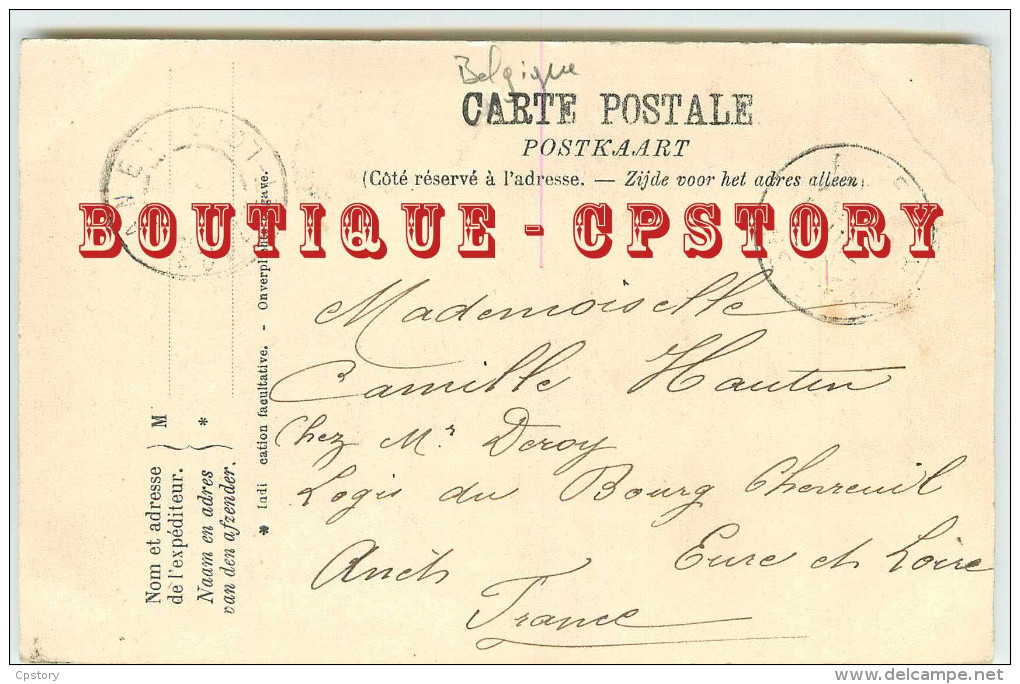 Belgique
CARTE POSTALE
POSTKAART
(Côté réservé à l'adresse. — Zijde voor het adres alleen)
ANET
BOUTIQUE - CPSTORY
Mademoiselle
Camille Hautin
chez Mr Deroy
Logis du Bourg Cherreuil
Anet Eure et Loire
France
Nom et adresse
de l'expéditeur.
M
Naam en adres
van den afzender.
*
* Indication facultative. - Onverplichte opgave.
Cpstory
www.delcampe.net